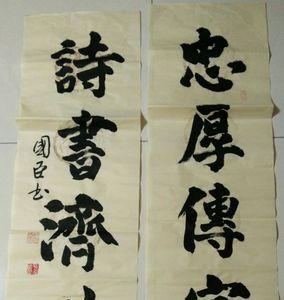 忠厚傳家
詩書濟
國臣书